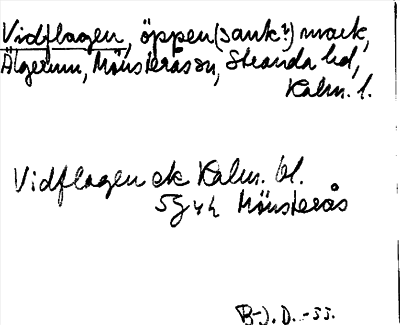 Vidflagen, öppen (sank?) mark,
Älgerum, Mönsterås sn, Stranda hd,
Kalm. l.
Vidflagen ek Kalm. bl.
5G4h Mönsterås
B-J. D. -33.